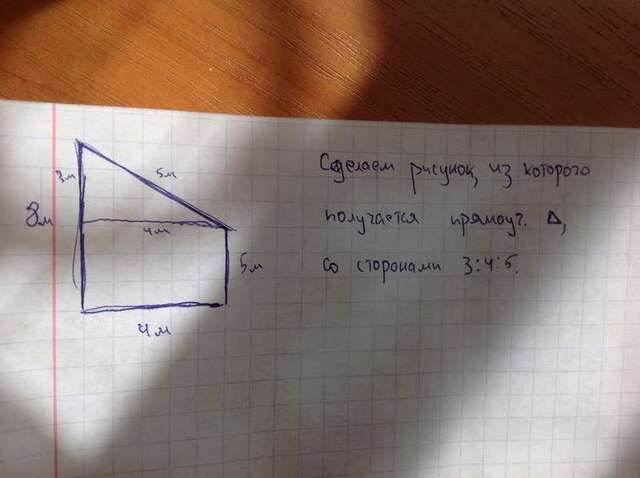 3м
5м
8м
4м
5м
4м
Сделаем рисунок, из которого
получается прямоуг. Δ,
со сторонами 3:4:5.